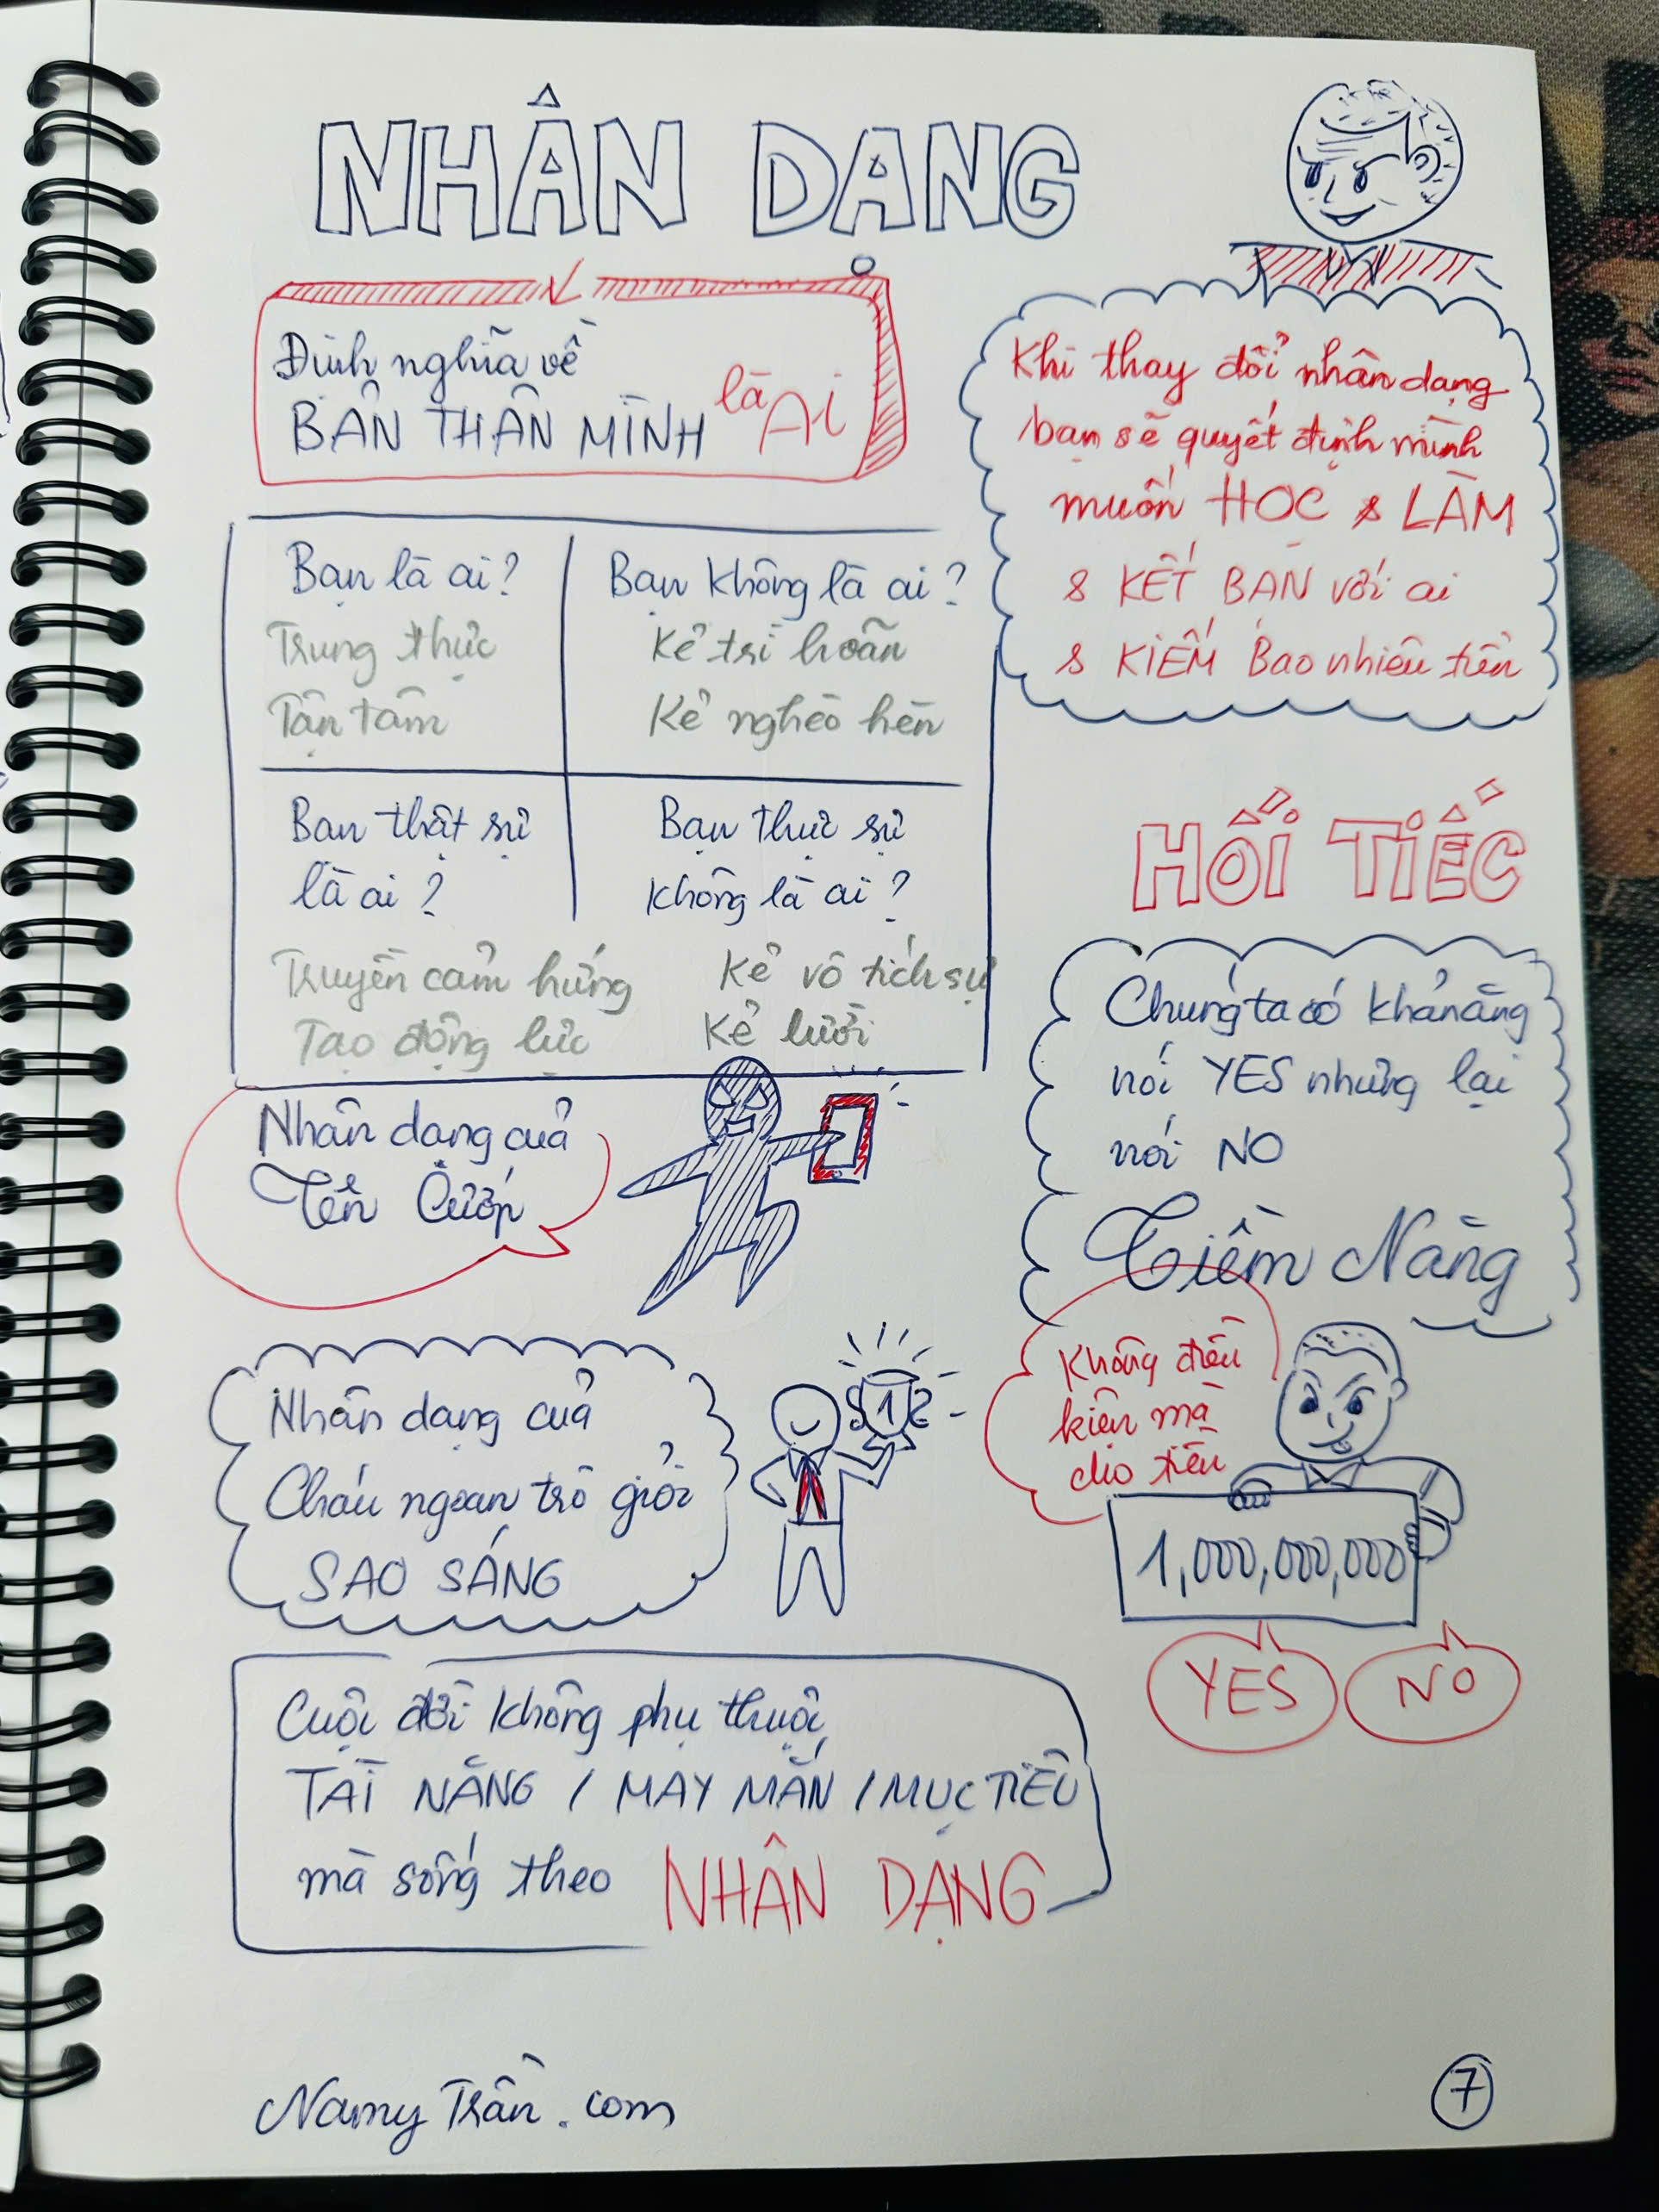 NHÂN DẠNG
Định nghĩa về
BẢN THÂN MÌNH là Ai
Khi thay đổi nhân dạng
bạn sẽ quyết định mình
muốn HỌC & LÀM
& KẾT BẠN với ai
& KIẾM Bao nhiêu tiền
Bạn là ai?
Trung thực
Tận tâm
Bạn không là ai?
Kẻ trì hoãn
Kẻ nghèo hèn
Bạn thật sự
là ai?
Truyền cảm hứng
Tạo động lực
Bạn thực sự
không là ai?
Kẻ vô tích sự
Kẻ lười
HỐI TIẾC
Chúng ta có khả năng
nói YES nhưng lại
nói NO
Tiềm Năng
Nhân dạng của
Tên Cướp
Nhân dạng của
Cháu ngoan trò giỏi
SAO SÁNG
1
Không điều
kiện mà
cho tiền
1,000,000,000
YES
NO
Cuộc đời không phụ thuộc
TÀI NĂNG / MAY MẮN / MỤC TIÊU
mà sống theo NHÂN DẠNG
Namy Trần.com
7